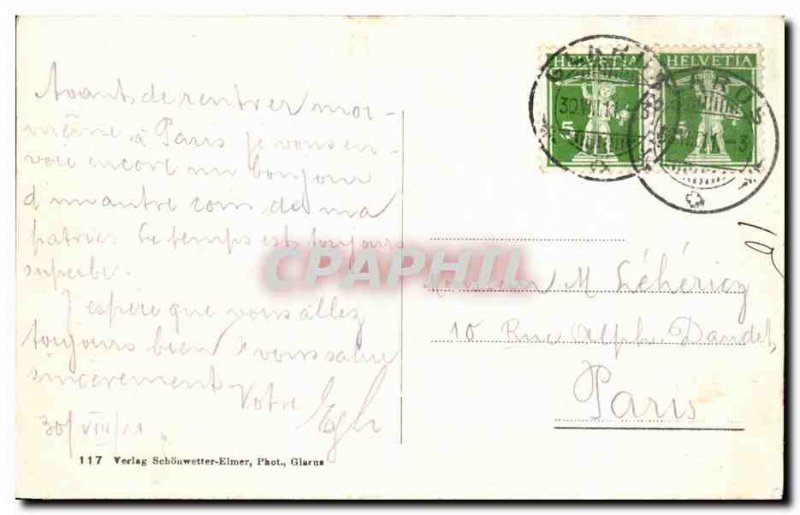 Avant de rentrer moi-
même à Paris je vous en-
voie encore un bonjour
d'un autre coin de ma
patrie. Le temps est toujours
superbe.
J'espère que vous allez
toujours bien & vous salue
sincèrement
Votre Egli
30/VIII/11
117 Verlag Schönwetter-Elmer, Phot., Glarus
HELVETIA
5
HELVETIA
GLARUS
30.VIII.11
GLARUS
CPAPHIL
Monsieur M Léhéricy
10 Rue Alph. Daudet,
Paris